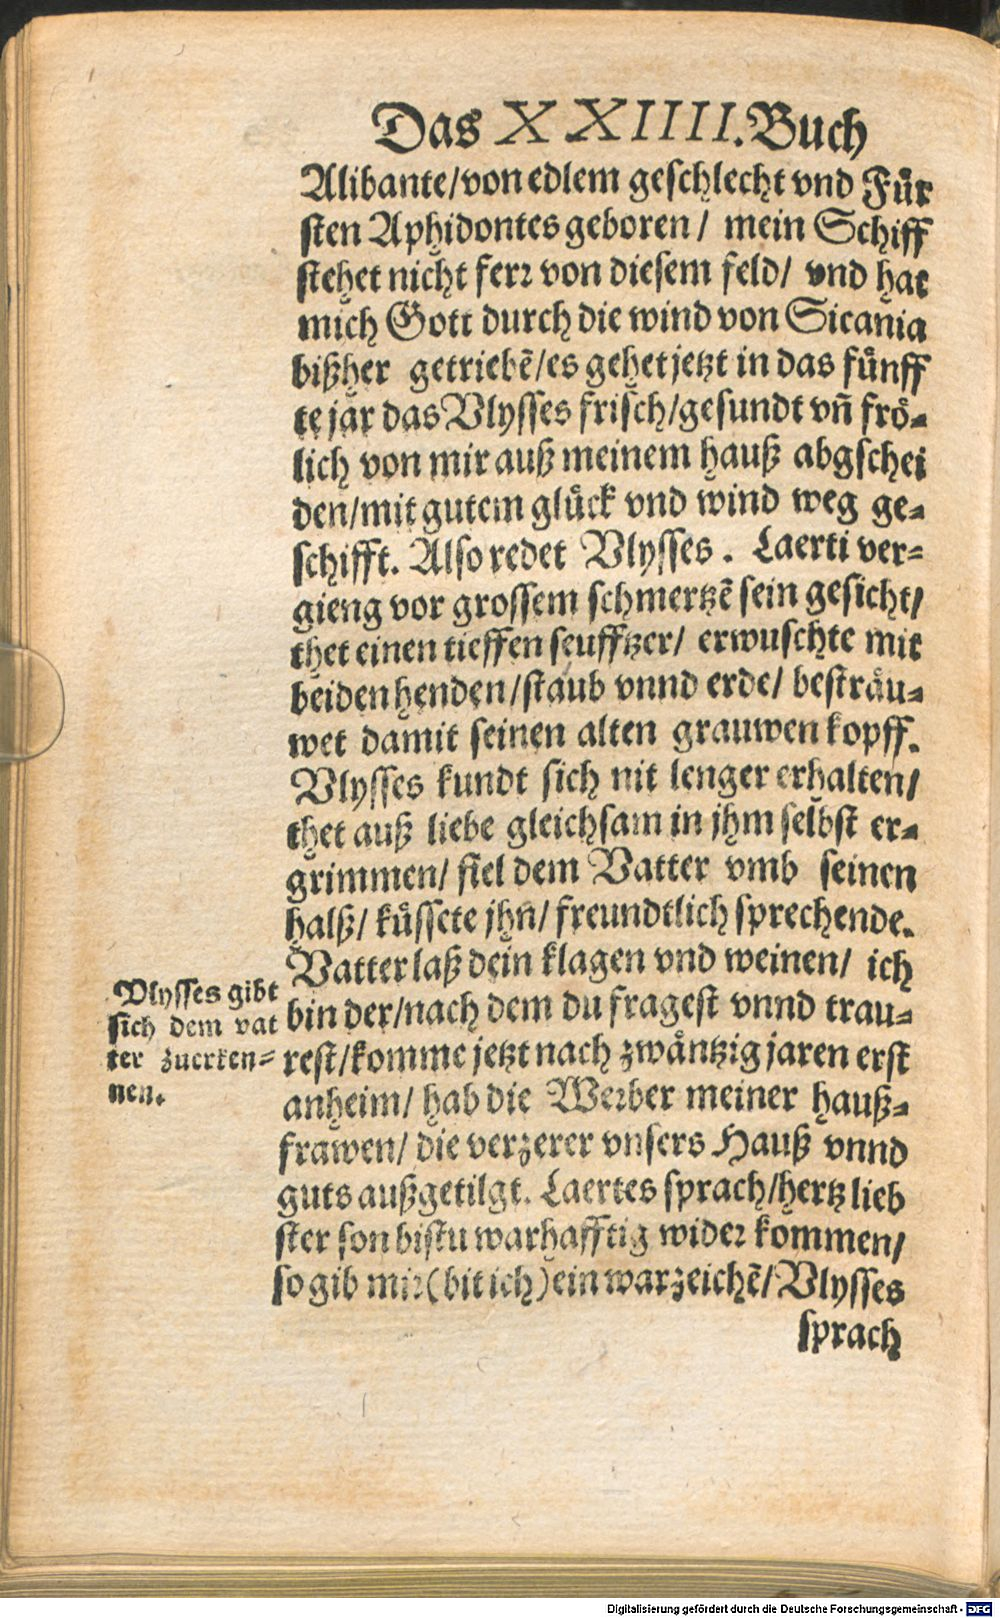 Das XXIIII. Buch
Alibante/von edlem geschlecht vnd Fuͤr
sten Aphidontes geboren/ mein Schiff
stehet nicht ferꝛ von diesem feld/ vnd hat
mich Gott durch die wind von Sicania
bißher getriebẽ/es gehet jetzt in das fuͤnff
te jar das Vlysses frisch/gesundt vñ froͤ⸗
lich von mir auß meinem hauß abgschei
den/mit gutem gluͤck vnd wind weg ge⸗
schifft. Also redet Vlysses. Laerti ver⸗
gieng vor grossem schmertzẽ sein gesicht/
thet einen tieffen seufftzer/ erwuschte mit
beiden henden/staub vnnd erde/ bestraͤu⸗
wet damit seinen alten grauwen kopff.
Vlysses kundt sich nit lenger erhalten/
thet auß liebe gleichsam in jhm selbst er⸗
grimmen/ fiel dem Vatter vmb seinen
halß/ kuͤssete jhn/ freundtlich sprechende.
Vatter laß dein klagen vnd weinen/ ich
bin der/nach dem du fragest vnnd trau⸗
rest/komme jetzt nach zwaͤntzig jaren erst
anheim/ hab die Werber meiner hauß⸗
frawen/ die verzerer vnsers Hauß vnnd
guts außgetilgt. Laertes sprach/hertz lieb
ster son bistu warhafftig wideꝛ kommen/
so gib mir (bit ich) ein warzeichẽ/Vlysses
sprach
Vlysses gibt
sich dem vat
ter zuerken⸗
nen.
Digitalisierung gefördert durch die Deutsche Forschungsgemeinschaft - DFG